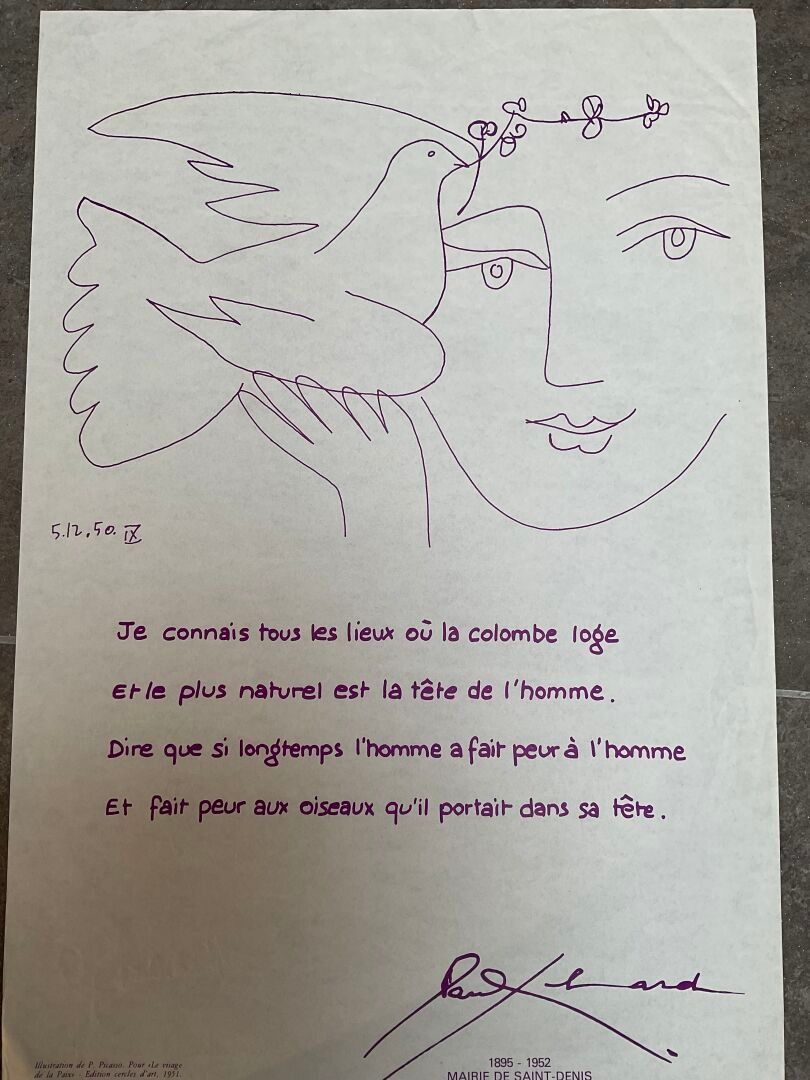 5.12.50. IX
Je connais tous les lieux où la colombe loge
Et le plus naturel est la tête de l'homme.
Dire que si longtemps l'homme a fait peur à l'homme
Et fait peur aux oiseaux qu'il portait dans sa tête.
Paul Eluard
Illustration de P. Picasso. Pour «Le visage
de la Paix» - Edition cercles d'art, 1951.
1895 - 1952
MAIRIE DE SAINT-DENIS